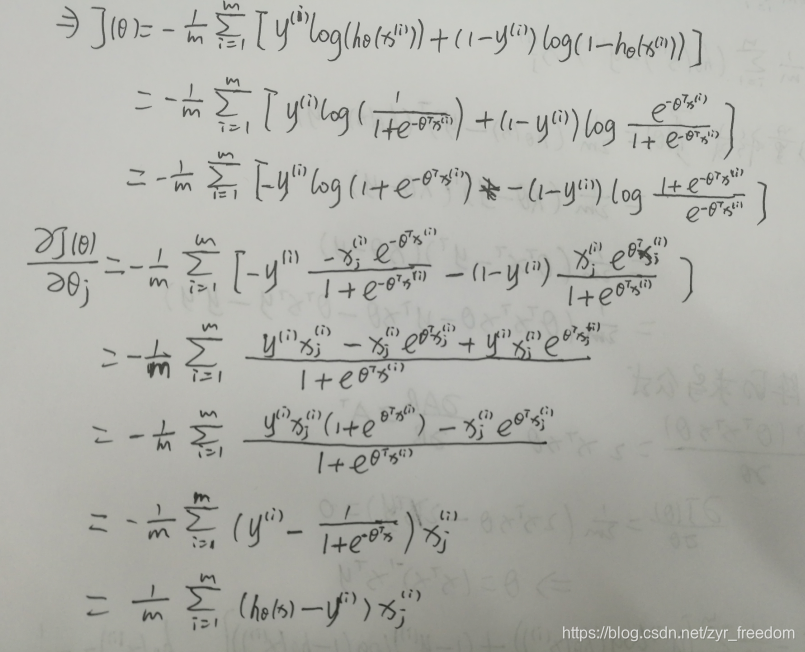 ⇒ J(θ) = -1/m Σ_{i=1}^{m} [ y^{(i)} log(h_θ(x^{(i)})) + (1-y^{(i)}) log(1-h_θ(x^{(i)})) ]
= -1/m Σ_{i=1}^{m} [ y^{(i)} log( 1/(1+e^{-θ^T x^{(i)}}) ) + (1-y^{(i)}) log e^{-θ^T x^{(i)}}/(1+e^{-θ^T x^{(i)}}) ]
= -1/m Σ_{i=1}^{m} [ -y^{(i)} log(1+e^{-θ^T x^{(i)}}) - (1-y^{(i)}) log (1+e^{-θ^T x^{(i)}})/e^{-θ^T x^{(i)}} ]
∂J(θ)/∂θ_j = -1/m Σ_{i=1}^{m} [ -y^{(i)} (-x_j^{(i)} e^{-θ^T x^{(i)}})/(1+e^{-θ^T x^{(i)}}) - (1-y^{(i)}) (x_j^{(i)} e^{θ^T x_j^{(i)}})/(1+e^{θ^T x^{(i)}}) ]
= -1/m Σ_{i=1}^{m} (y^{(i)} x_j^{(i)} - x_j^{(i)} e^{θ^T x_j^{(i)}} + y^{(i)} x_j^{(i)} e^{θ^T x_j^{(i)}})/(1+e^{θ^T x^{(i)}})
= -1/m Σ_{i=1}^{m} (y^{(i)} x_j^{(i)} (1+e^{θ^T x^{(i)}}) - x_j^{(i)} e^{θ^T x_j^{(i)}})/(1+e^{θ^T x^{(i)}})
= -1/m Σ_{i=1}^{m} (y^{(i)} - 1/(1+e^{-θ^T x})) x_j^{(i)}
= 1/m Σ_{i=1}^{m} (h_θ(x) - y^{(i)}) x_j^{(i)}
https://blog.csdn.net/zyr_freedom